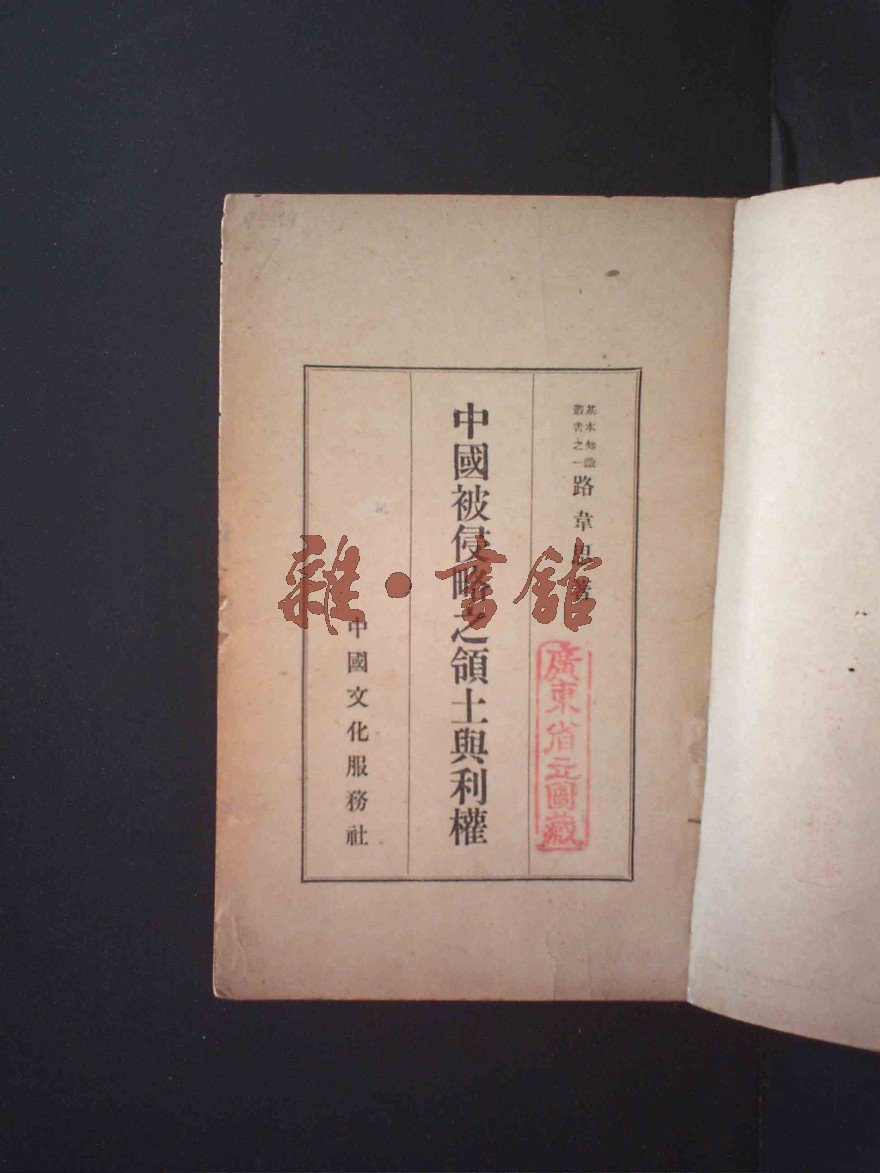 基本知識
叢書之一
路韋思著
中國被侵略之領土與利權
中國文化服務社
廣東省立圖藏
雜·書館